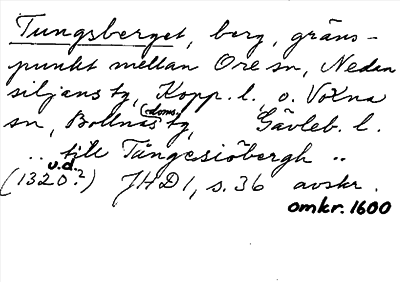 Tungsberget, berg, gräns-
punkt mellan Ore sn, Nedan
siljans tg, Kopp. l., o. Voxna
sn, Bollnäs doms. tg, Gävleb. l.
.. till Tängesiöbergh ..
u.d.
(1320?²) JHD 1, s. 36 avskr.
omkr. 1600